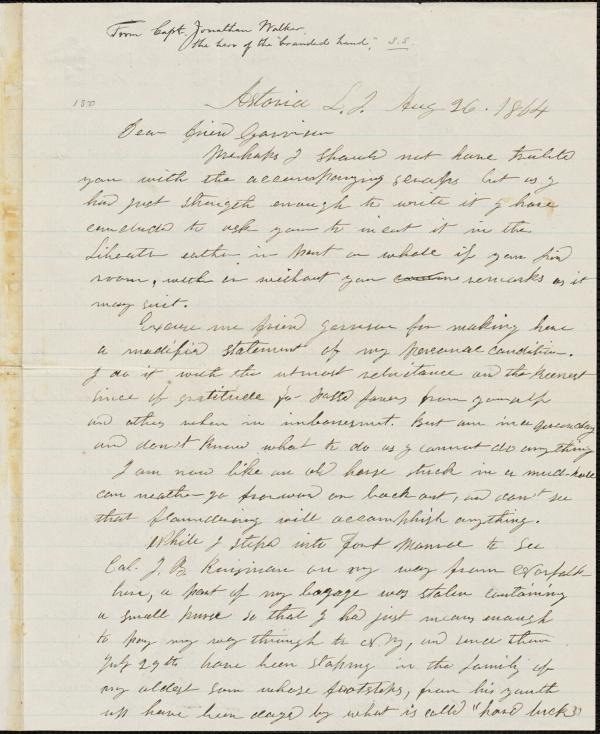 From Capt. Jonathan Walker,
the hero of the "branded hand," S.S.
Astoria L. I. Aug 26. 1864
Dear friend Garrison
Perhaps I should not have trubled
you with the accompanying scraps but as I
had just strength enough to write it I have
concluded to ask you to incert it in the
Liberator eather in part or whole if you find
room, with or without your remarks as it
may suit.
Excuse me friend garrison for making here
a modifid statement of my personal condition.
I do it with the utmost reluctance and the keenest
since of gratitude for past favors from yourself
and others when in imbonsment. But am in a quandary
and don't know what to do as I cannot do anything
I am now like an old horse stuck in a mud-hole
can neather go forward or back out, and don't see
that floundering will accomphish anything.
While I stept into Fort Monroe to see
Col. J. B. Kinsman on my way from Norfolk
here, a part of my bagage was stolen containing
a small purse so that I had just means enough
to pay my way through to N Y, and since then
July 29th have been stoping in the family of
my oldest son whose footsteps, from his youth
up have been doged by what is calld "hard luck"